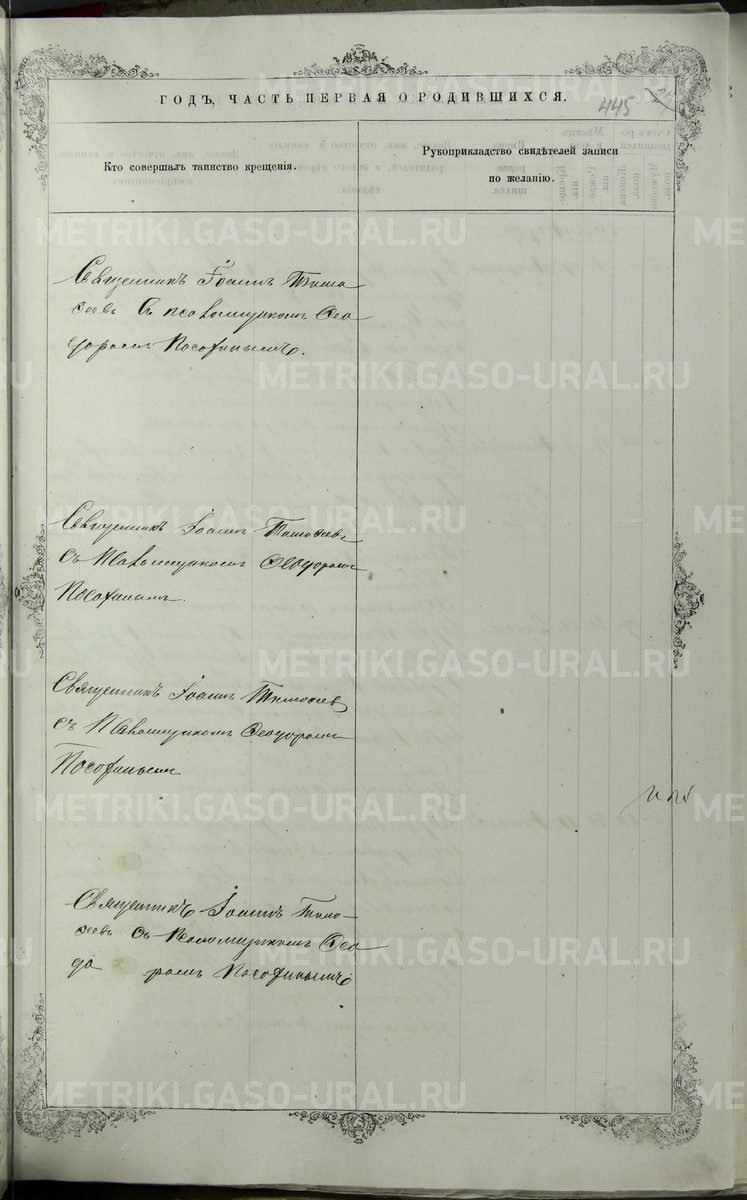 ГОДЪ, ЧАСТЬ ПЕРВАЯ О РОДИВШИХСЯ.
445
Кто совершалъ таинство крещенія.
Рукоприкладство свидѣтелей записи
по желанію.
Священникъ Іоаннъ Тимо
ѳеевъ Съ псаломщикомъ Ѳео
доромъ
Священникъ Іоаннъ Тимоѳеевъ
съ Псаломщикомъ Ѳеодоромъ
Священникъ Іоаннъ Тимоѳеев
съ Псаломщикомъ Ѳеодоромъ
Священникъ Іоаннъ Тимо–
ѳеевъ Съ Псаломщикомъ Ѳео
до ромъ
METRIKI.GASO-URAL.RU